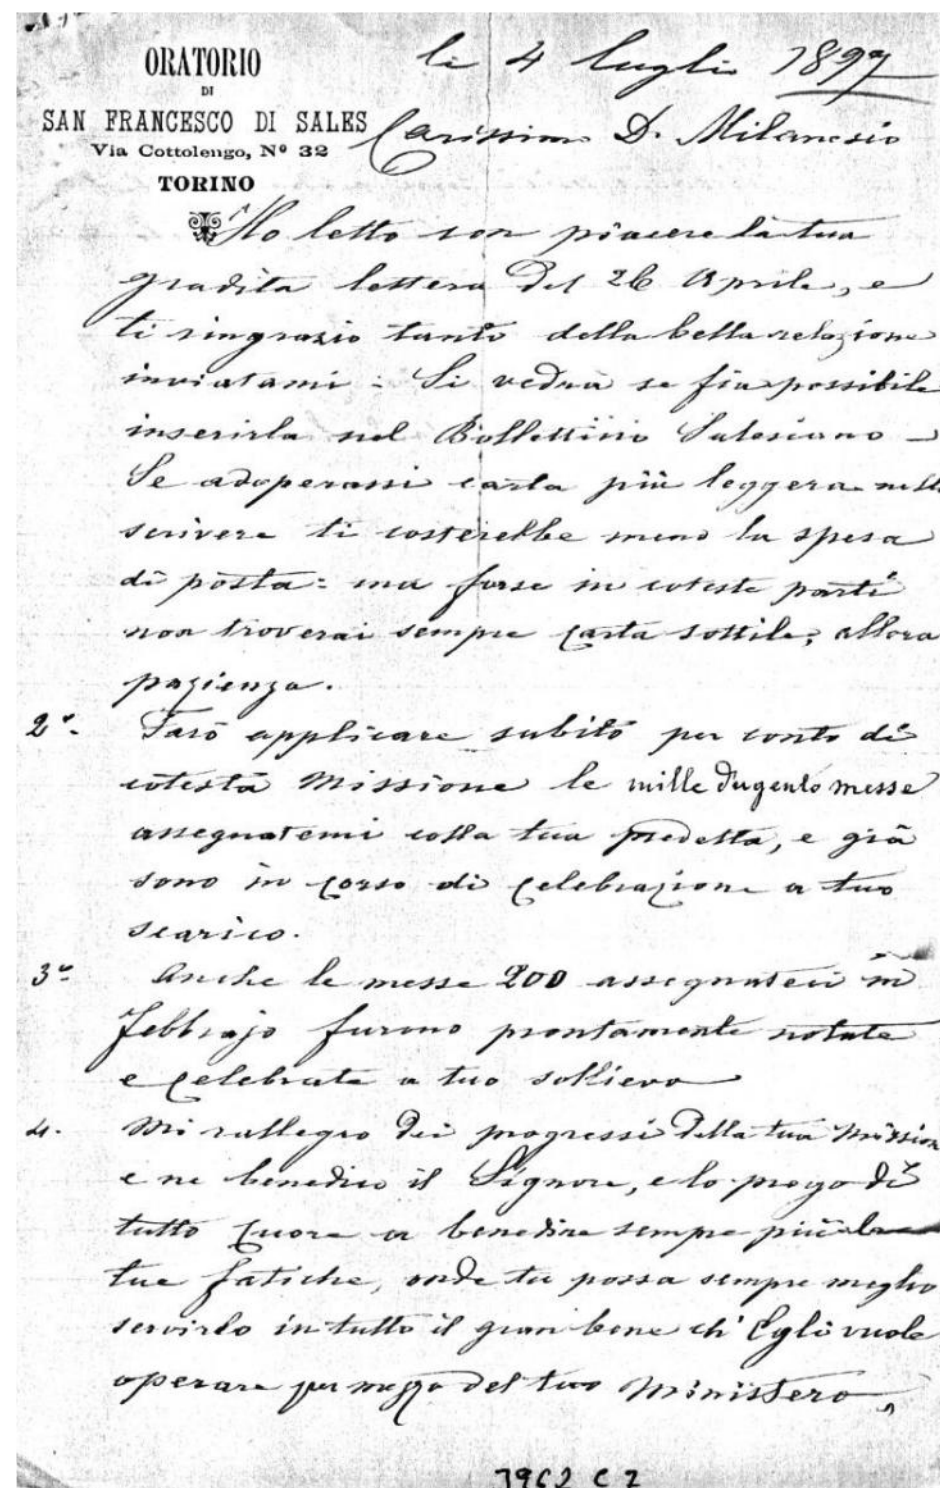 ORATORIO
DI
SAN FRANCESCO DI SALES
Via Cottolengo, Nº 32
TORINO
li 4 Luglio 1897
Carissimo D. Milanesio
Ho letto con piacere la tua
gradita lettera del 26 Aprile, e
ti ringrazio tanto della bella relazione
inviatami: Si vedrà se fia possibile
inserirla nel Bollettino Salesiano –
Se adoperassi carta più leggera nello
scrivere ti costerebbe meno la spesa
di posta: ma forse in coteste parti
non troverai sempre carta sottile; allora
pazienza.
2º. Farò applicare subito per conto di
cotesta Missione le mille dugento messe
assegnatemi colla tua predetta, e già
sono in corso di celebrazione a tuo
scarico.
3º Anche le messe 200 assegnateci in
Febbrajo furono prontamente notate
e celebrate a tuo sollievo
4. Mi rallegro dei progressi della tua Mission
e ne benedico il Signore, e lo prego di
tutto cuore a benedire sempre più le
tue fatiche, onde tu possa sempre meglio
servirlo in tutto il gran bene ch' Egli vuole
operare per mezzo del tuo Ministero,
3962 C 7